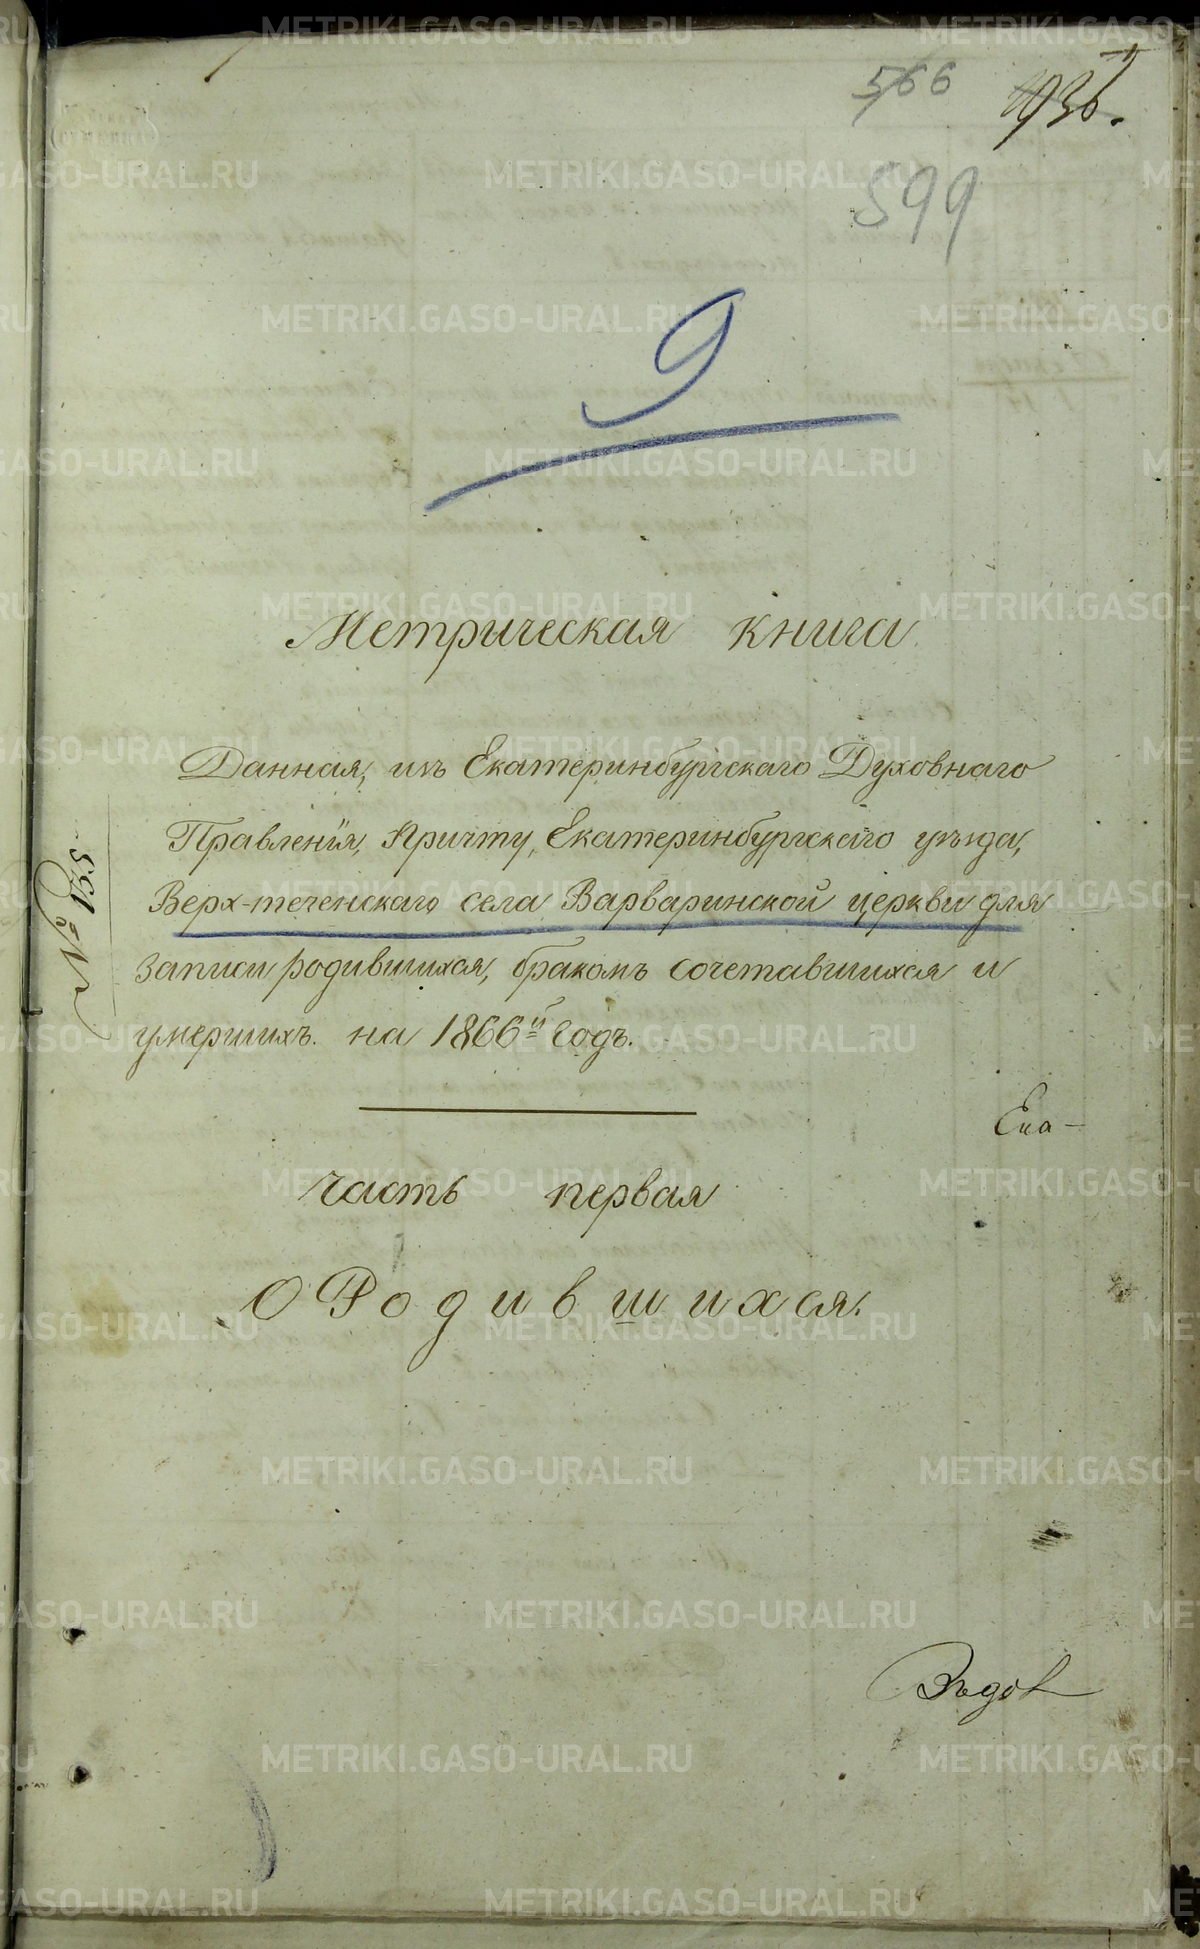 566
599
9
Метрическая книга
Данная, изъ Екатеринбургскаго Духовнаго
Правленія, Причту, Екатеринбургскаго уѣзда,
Верх-теченскаго села Варваринской церкви для
записи родившихся, бракомъ сочетавшихся и
умершихъ. на 1866й Годъ.
Ека-
Часть первая
О Родившихся.
METRIKI.GASO-URAL.RU